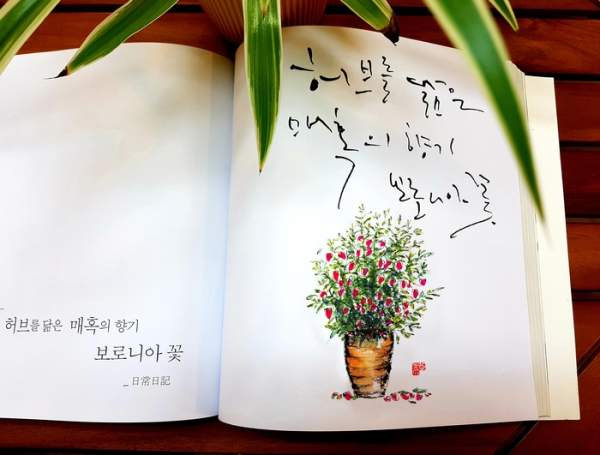 허브를 닮은 매혹의 향기
보로니아 꽃
_ 日常日記
허브를 닮은
매혹의 향기
보로니아 꽃